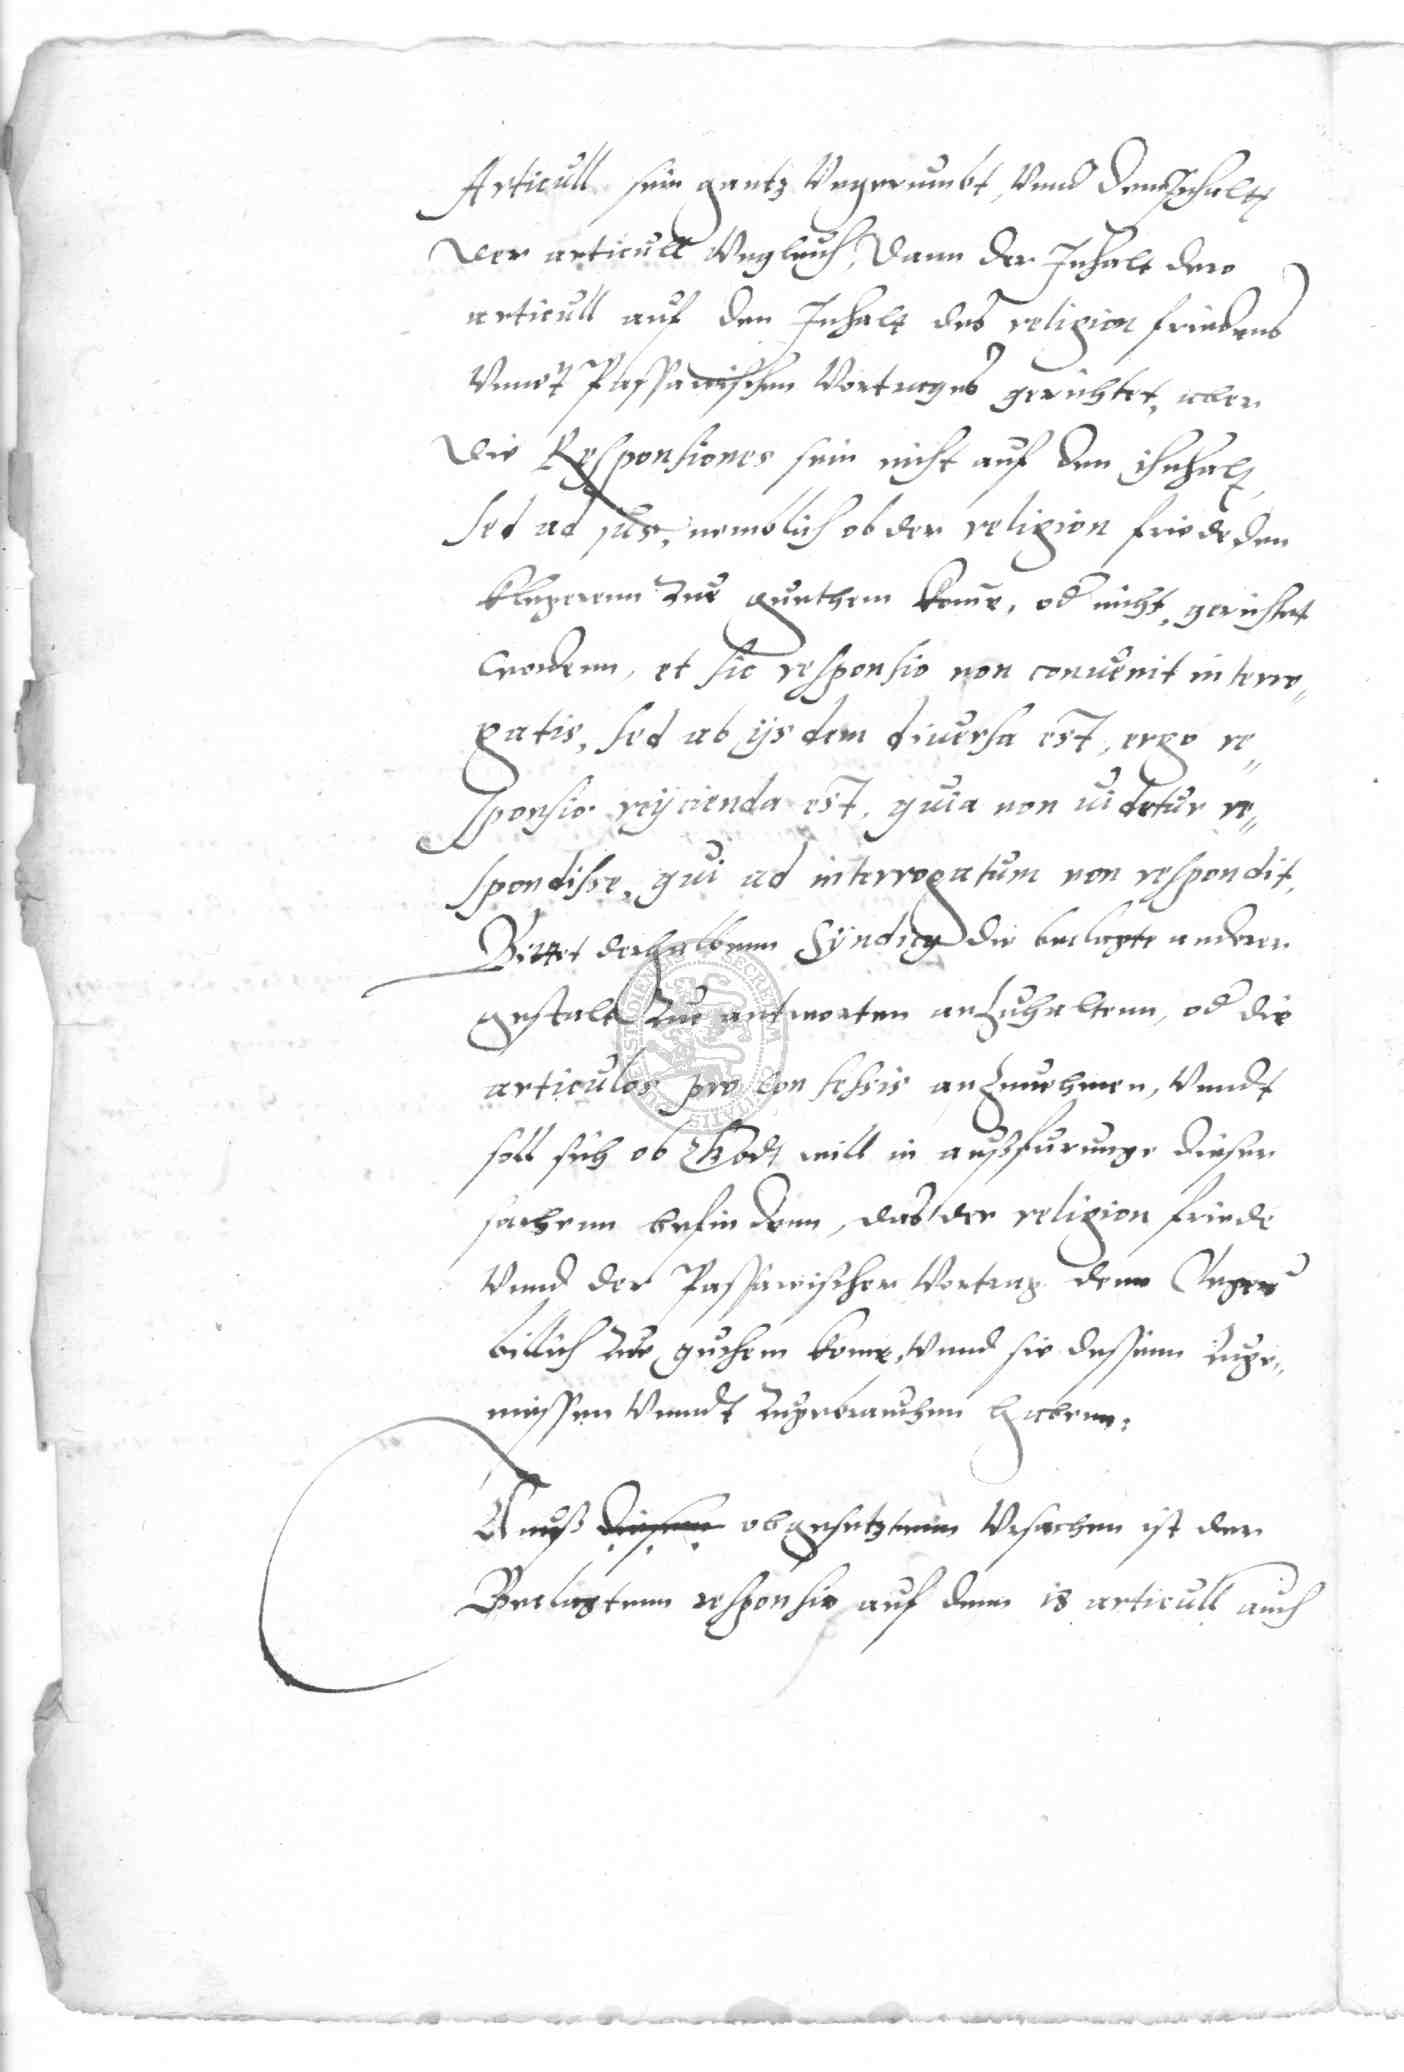 Articull sein gantz Vngereumbt, Vnnd dem Inhaltt
der articull Vngleich, Dann der Inhalt dero
articull auf den Inhalt des religion friedens
Vnndt Passawischen Vortrages gerichtet, aber
die Responsiones sein nicht auf den Inhalt,
sed ad jus, nemblich ob der religion friede den
klegerenn zue guethem kome, od nicht, gerichtet
wordenn, et sic responsio non conuenit interro„
gatis, sed ab ijsdem diuersa est, ergo re„
sponsio reijcienda est, quia non uidetur re„
spondisse, qui ad interrogatum non respondit,
Bittet derhalbenn Syndicus die beclagte anderer
gestalt zue antworten anzuhaltenn, od die
articulos pro confessis anzunehmen, Vnndt
soll sich ob Godt will in außfurunge dieser
sachenn befindenn, das der religion friede
Vnnd der Passawischer Vortrag denn
billich zue guthem kome, Vnnd sie dessenn zuge„
niessen Vnndt zugebrauchen habenn.
Auß diesenn obgesetztenn Vrsachen ist der
Beclagtenn responsio auf denn 18 articull auch
SECRETUM CIVITATIS